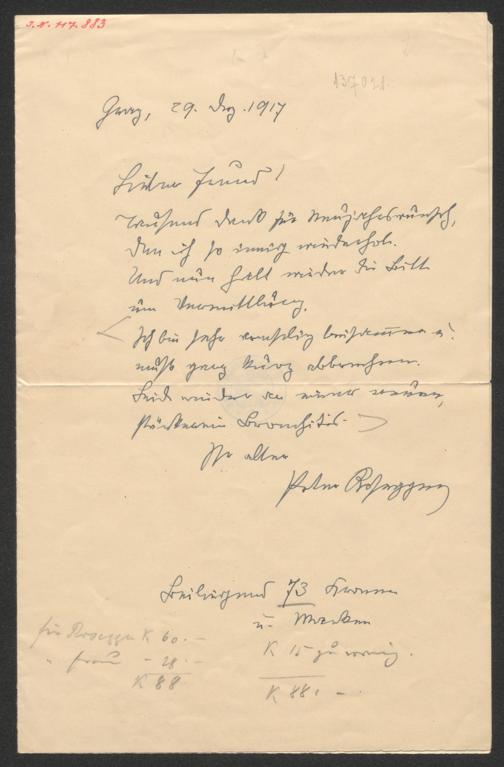 J.N. 117.883
137021.
Graz, 29. Dez. 1917
Lieber Freund!
Tausend Dank für Neujahrswunsch,
den ich so innig wiederhole.
Und nun halt wieder die Bitte
um Vermittlung.
Ich bin sehr beisammen u.
muß ganz kurz abbrechen.
Leide wieder an einer neuen,
stärkeren Bronchitis.
Ihr alter
Peter Rosegger
Beiliegend 73 Kronen
u. Marken
für Rosegger K 60.–
" Frau – 28.–
K 88
K 15 zu wenig.
K 88.–